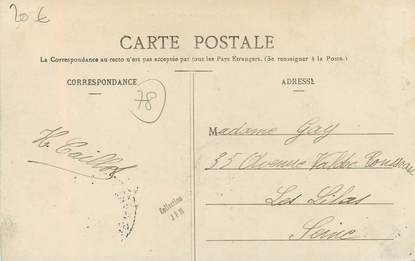 20 €
CARTE POSTALE
La Correspondance au recto n'est pas acceptée par tous les Pays Etrangers. (Se renseigner à la Poste.)
CORRESPONDANCE
ADRESSE
78
Madame Gay
35 Avenue
Les Lilas
Seine
H. Caillot
Collection